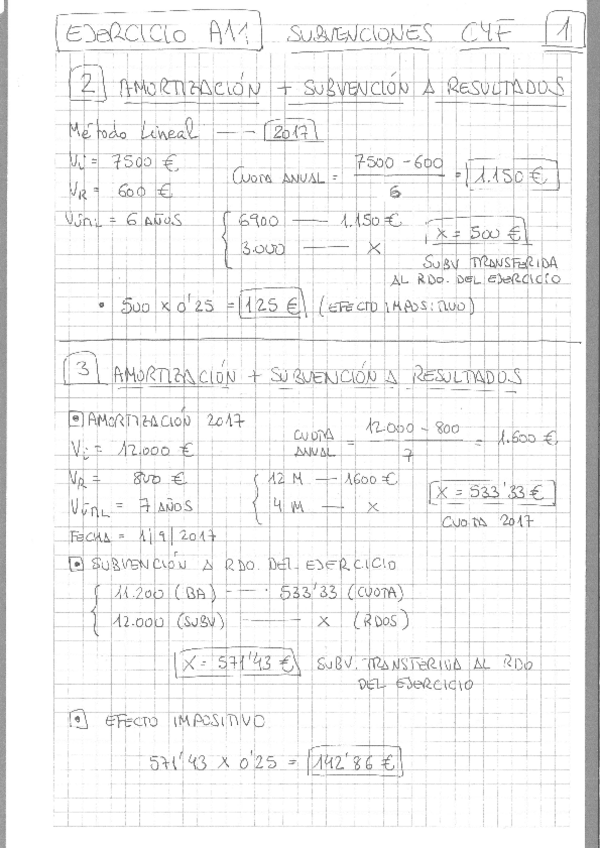 EJERCICIO A11 SUBVENCIONES C4F 1
2 AMORTIZACIÓN + SUBVENCIÓN A RESULTADOS
Método Lineal —— 2017
Vi = 7500 €
VR = 600 €
VÚTIL = 6 AÑOS
CUOTA ANUAL = 7500 - 600 / 6 = 1.150 €
6900 —— 1.150 €
3.000 —— X
X = 500 €
SUBV TRANSFERIDA
AL RDO. DEL EJERCICIO
• 500 x 0'25 = 125 € (EFECTO IMPOSITIVO)
3 AMORTIZACIÓN + SUBVENCIÓN A RESULTADOS
• AMORTIZACIÓN 2017
Vi = 12.000 €
VR = 800 €
VÚTIL = 7 AÑOS
FECHA = 1|9|2017
CUOTA ANUAL = 12.000 - 800 / 7 = 1.600 €
12 M — 1600 €
4 M — X
X = 533'33 €
CUOTA 2017
• SUBVENCIÓN A RDO. DEL EJERCICIO
11.200 (BA) —— 533'33 (CUOTA)
12.000 (SUBV) —— X (RDOS)
X = 571'43 € SUBV. TRANSFERIDA AL RDO
DEL EJERCICIO
• EFECTO IMPOSITIVO
571'43 x 0'25 = 142'86 €